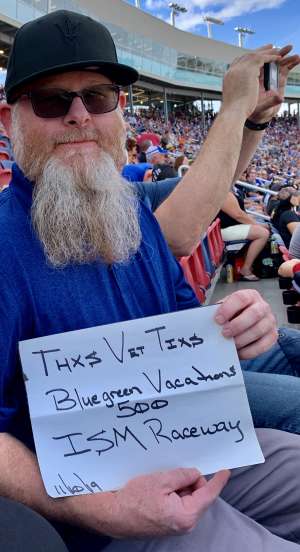 THX$ VET TIX$
Bluegreen Vacations
500
ISM Raceway
11/10/19